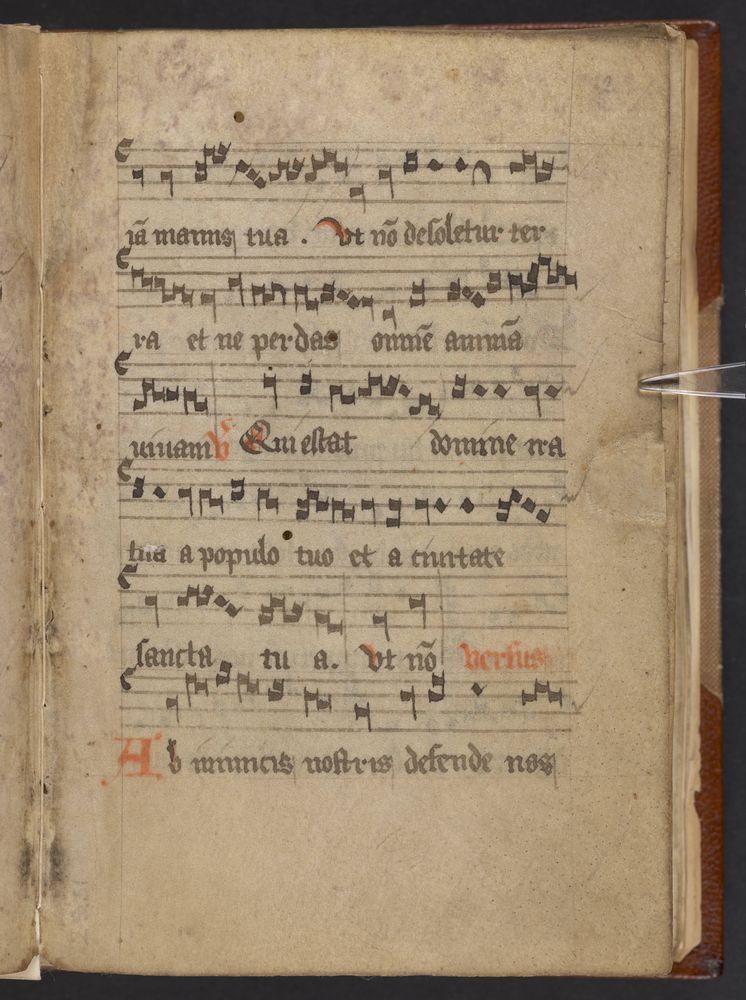 iā manus tua . Vt nō desoletur ter
ra et ne perdas omnē animā
uiuam V Quiescat domine ira
tua a populo tuo et a ciuitate
sancta tu a . Vt nō versus
Ab inimicis nostris defende nos